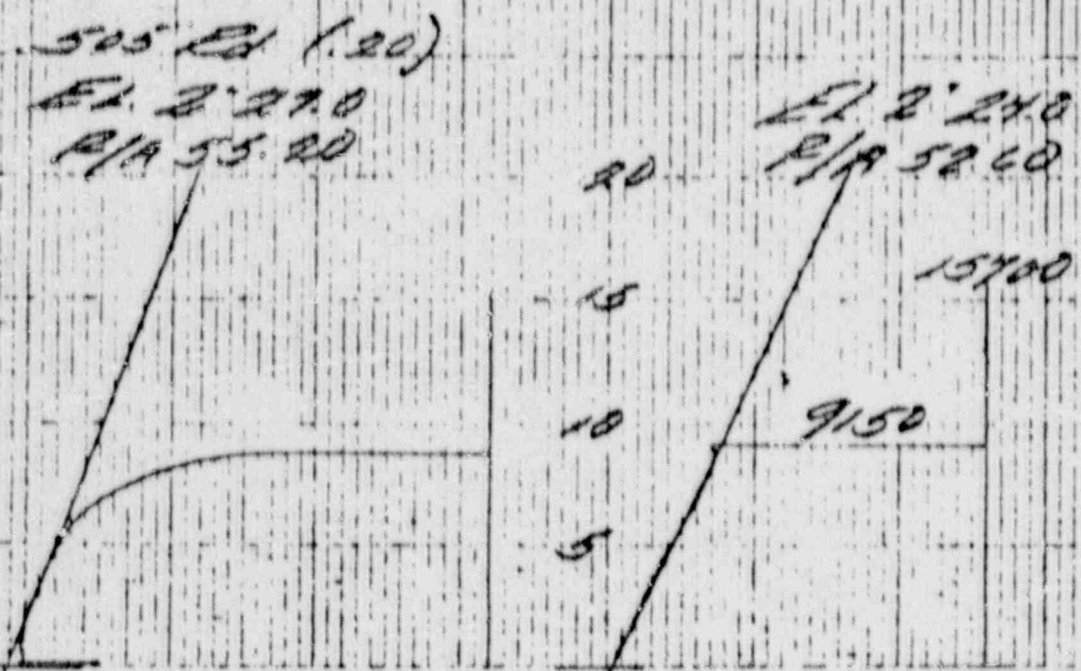 .505 Rd (.20)
El. 2" 27.0
R/A 55.20
El. 2" 24.0
R/A 52.60
20
15700
15
10
9150
5